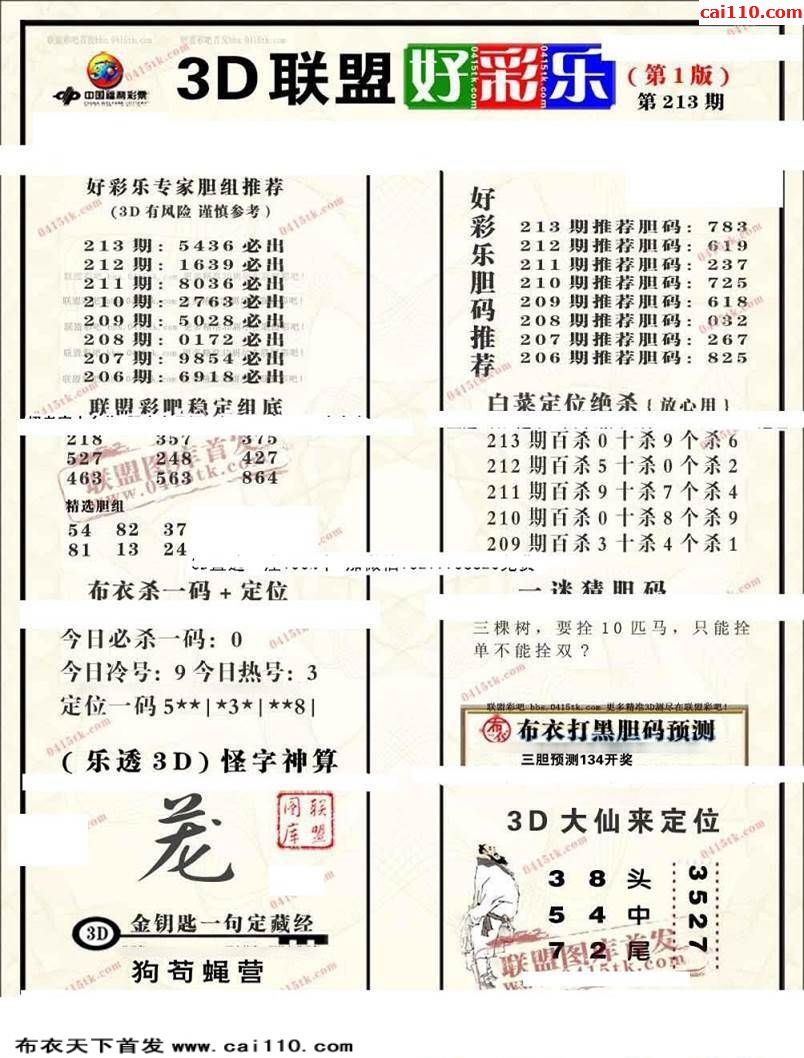 cai110.com
中国福利彩票
CHINA WELFARE LOTTERY
3D联盟好彩乐
(第1版)
第213期
好彩乐专家胆组推荐
(3D有风险 谨慎参考)
213期：5436必出
212期：1639必出
211期：8036必出
210期：2763必出
209期：5028必出
208期：0172必出
207期：9854必出
206期：6918必出
联盟彩吧稳定组底
218 357 375
527 248 427
463 563 864
精选胆组
54 82 37
81 13 24
布衣杀一码+定位
今日必杀一码：0
今日冷号：9今日热号：3
定位一码5**|*3*|**8|
(乐透3D)怪字神算
联盟图库
3D 金钥匙一句定藏经
狗苟蝇营
好彩乐胆码推荐
213期推荐胆码：783
212期推荐胆码：619
211期推荐胆码：237
210期推荐胆码：725
209期推荐胆码：618
208期推荐胆码：032
207期推荐胆码：267
206期推荐胆码：825
白菜定位绝杀{放心用}
213期百杀0十杀9个杀6
212期百杀5十杀0个杀2
211期百杀9十杀7个杀4
210期百杀0十杀8个杀9
209期百杀3十杀4个杀1
一谜猜胆码
三棵树，要拴10匹马，只能拴
单不能拴双？
联盟彩吧 bbs.0415tk.com 更多精准3D谜尽在联盟彩吧！
布衣打黑胆码预测
三胆预测134开奖
3D大仙来定位
3 8 头
5 4 中
7 2 尾
3527
联盟图库首发
www.0415tk.com
布衣天下首发www.cai110.com